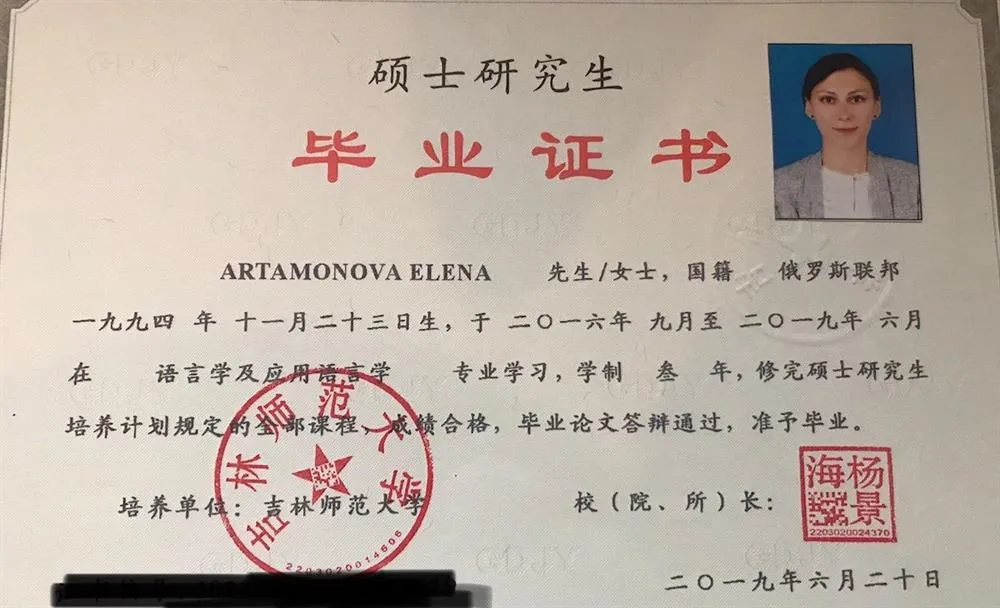 硕士研究生
毕业证书
ARTAMONOVA ELENA 先生/女士，国籍 俄罗斯联邦
一九九四 年 十一月二十三日生，于 二〇一六年 九月至 二〇一九年 六月
在 语言学及应用语言学 专业学习，学制 叁 年，修完硕士研究生
培养计划规定的全部课程，成绩合格，毕业论文答辩通过，准予毕业。
培养单位：吉林师范大学 校（院、所）长：
吉林师范大学
2203020014606
杨景海
2203020024370
二〇一九年六月二十日